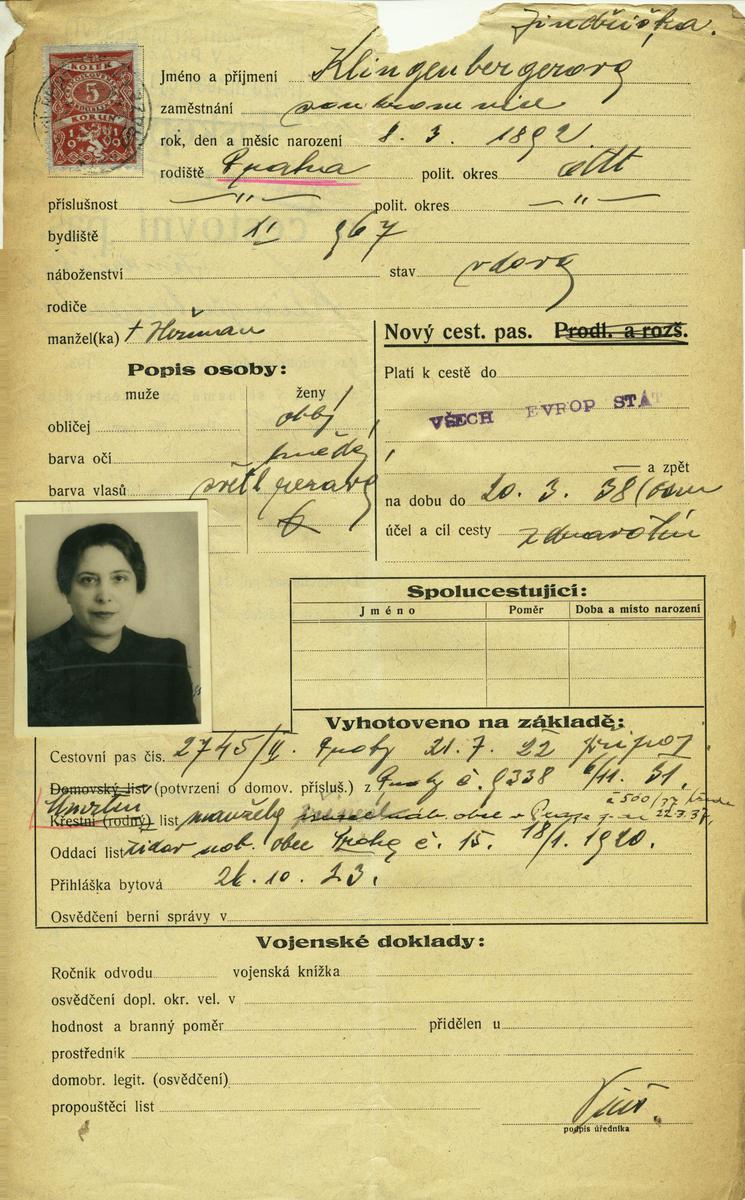 Jindřiška.
KOLEK
5
KORUN
1919
Jméno a příjmení Klingenbergerová
zaměstnání soukromnice
rok, den a měsíc narození 8. 3. 1892.
rodiště Praha polit. okres
příslušnost — " — polit. okres — " —
bydliště II 967
náboženství stav vdova
rodiče
manžel(ka) † Heřman
Nový cest. pas. Prodl. a rozš.
Popis osoby:
muže ženy
obličej
barva očí hnědé
barva vlasů světl
Platí k cestě do
VŠECH EVROP STÁT
— a zpět
na dobu do 20. 3. 38
účel a cíl cesty zdravotní
Spolucestující:
Jméno Poměr Doba a místo narození
Vyhotoveno na základě:
Cestovní pas čís. 2745/II. Prahy 21. 7. 22
Domovský list (potvrzení o domov. přísluš.) z Prahy č. 9338 31.
Úmrtní
Křestní (rodný) list manžela obce v
Oddací list židov náb. obce Prahy č. 15. 18/1. 1920.
Přihláška bytová 26. 10. 23.
Osvědčení berní správy v
Vojenské doklady:
Ročník odvodu vojenská knížka
osvědčení dopl. okr. vel. v
hodnost a branný poměr přidělen u
prostředník
domobr. legit. (osvědčení)
propouštěcí list
podpis úředníka